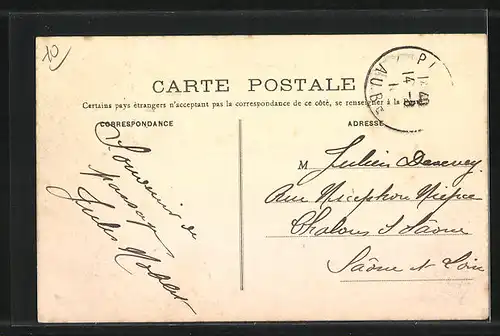 10
CARTE POSTALE
Certains pays étrangers n'acceptant pas la correspondance de ce côté, se renseigner à la
CORRESPONDANCE
ADRESSE
Souvenir de
passage
Jules
M Julien
Rue Nicéphore Niepce
Chalons s Saône
Saône et Loire
14 40
14 -8
AUBE